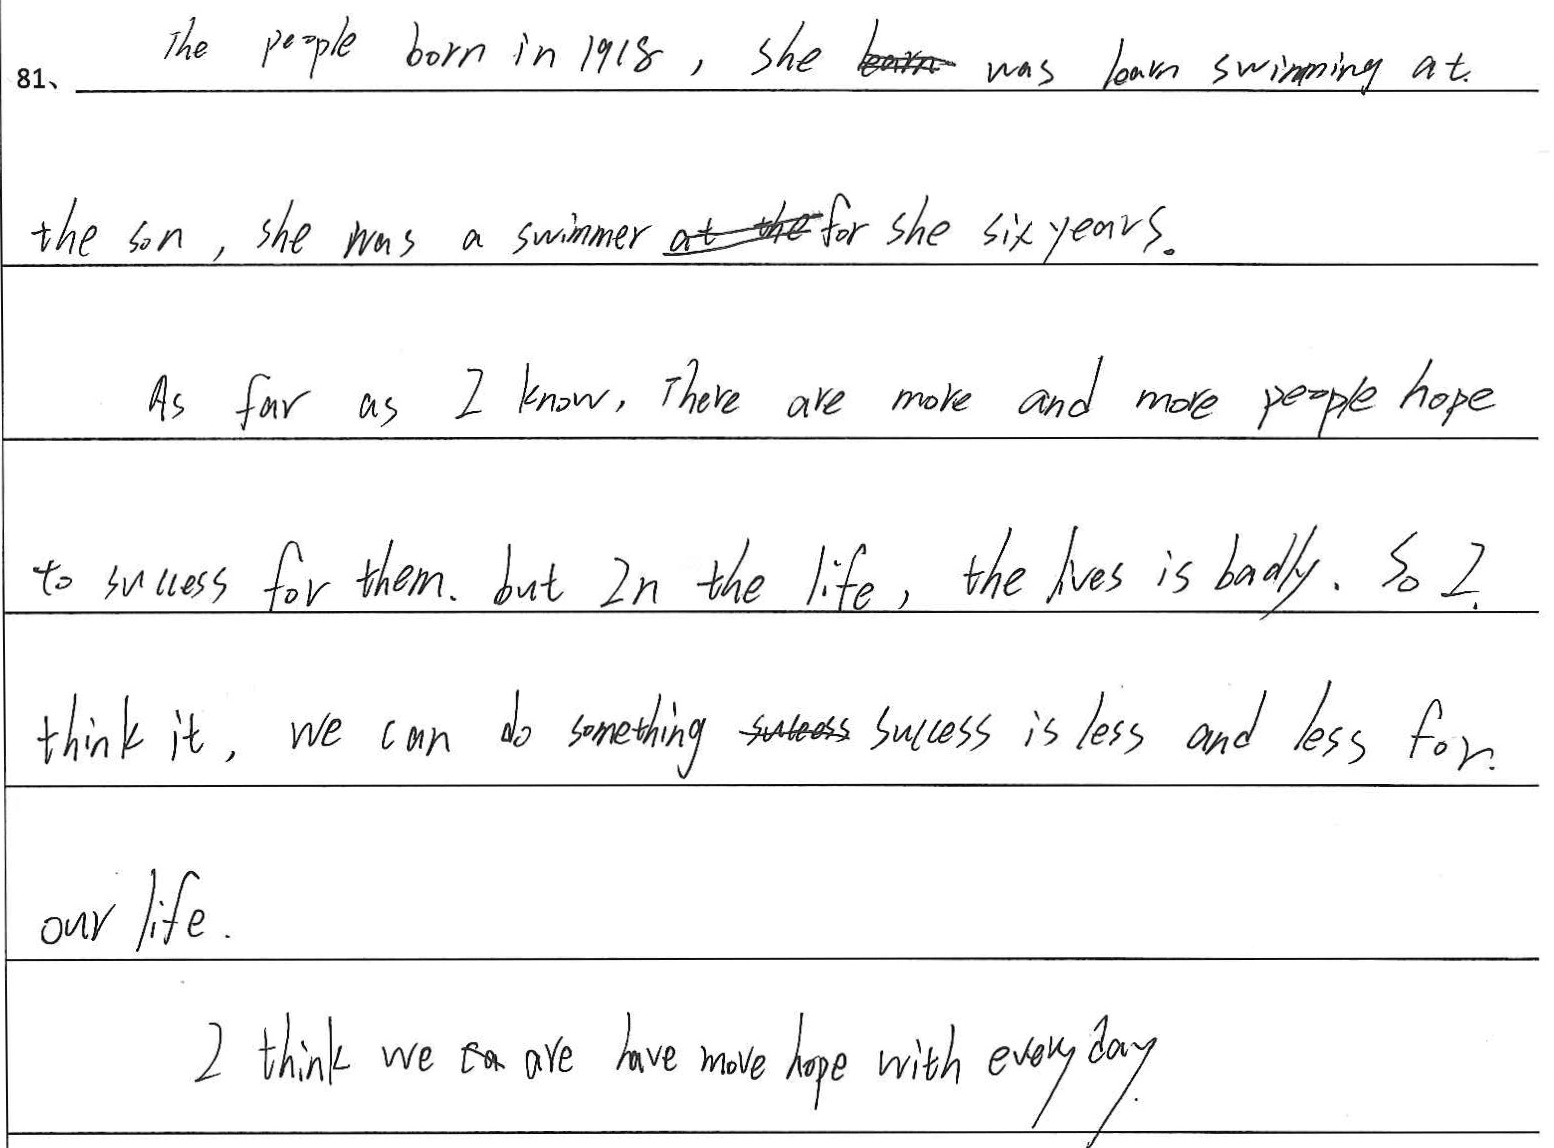 The people born in 1918, she was learn swimming at.
81、
the son, she was a swimmer for she six years.
As far as I know, There are more and more people hope
to success for them. but In the life, the lives is badly. So I.
think it, we can do something success is less and less for.
our life.
I think we are have more hope with every day.